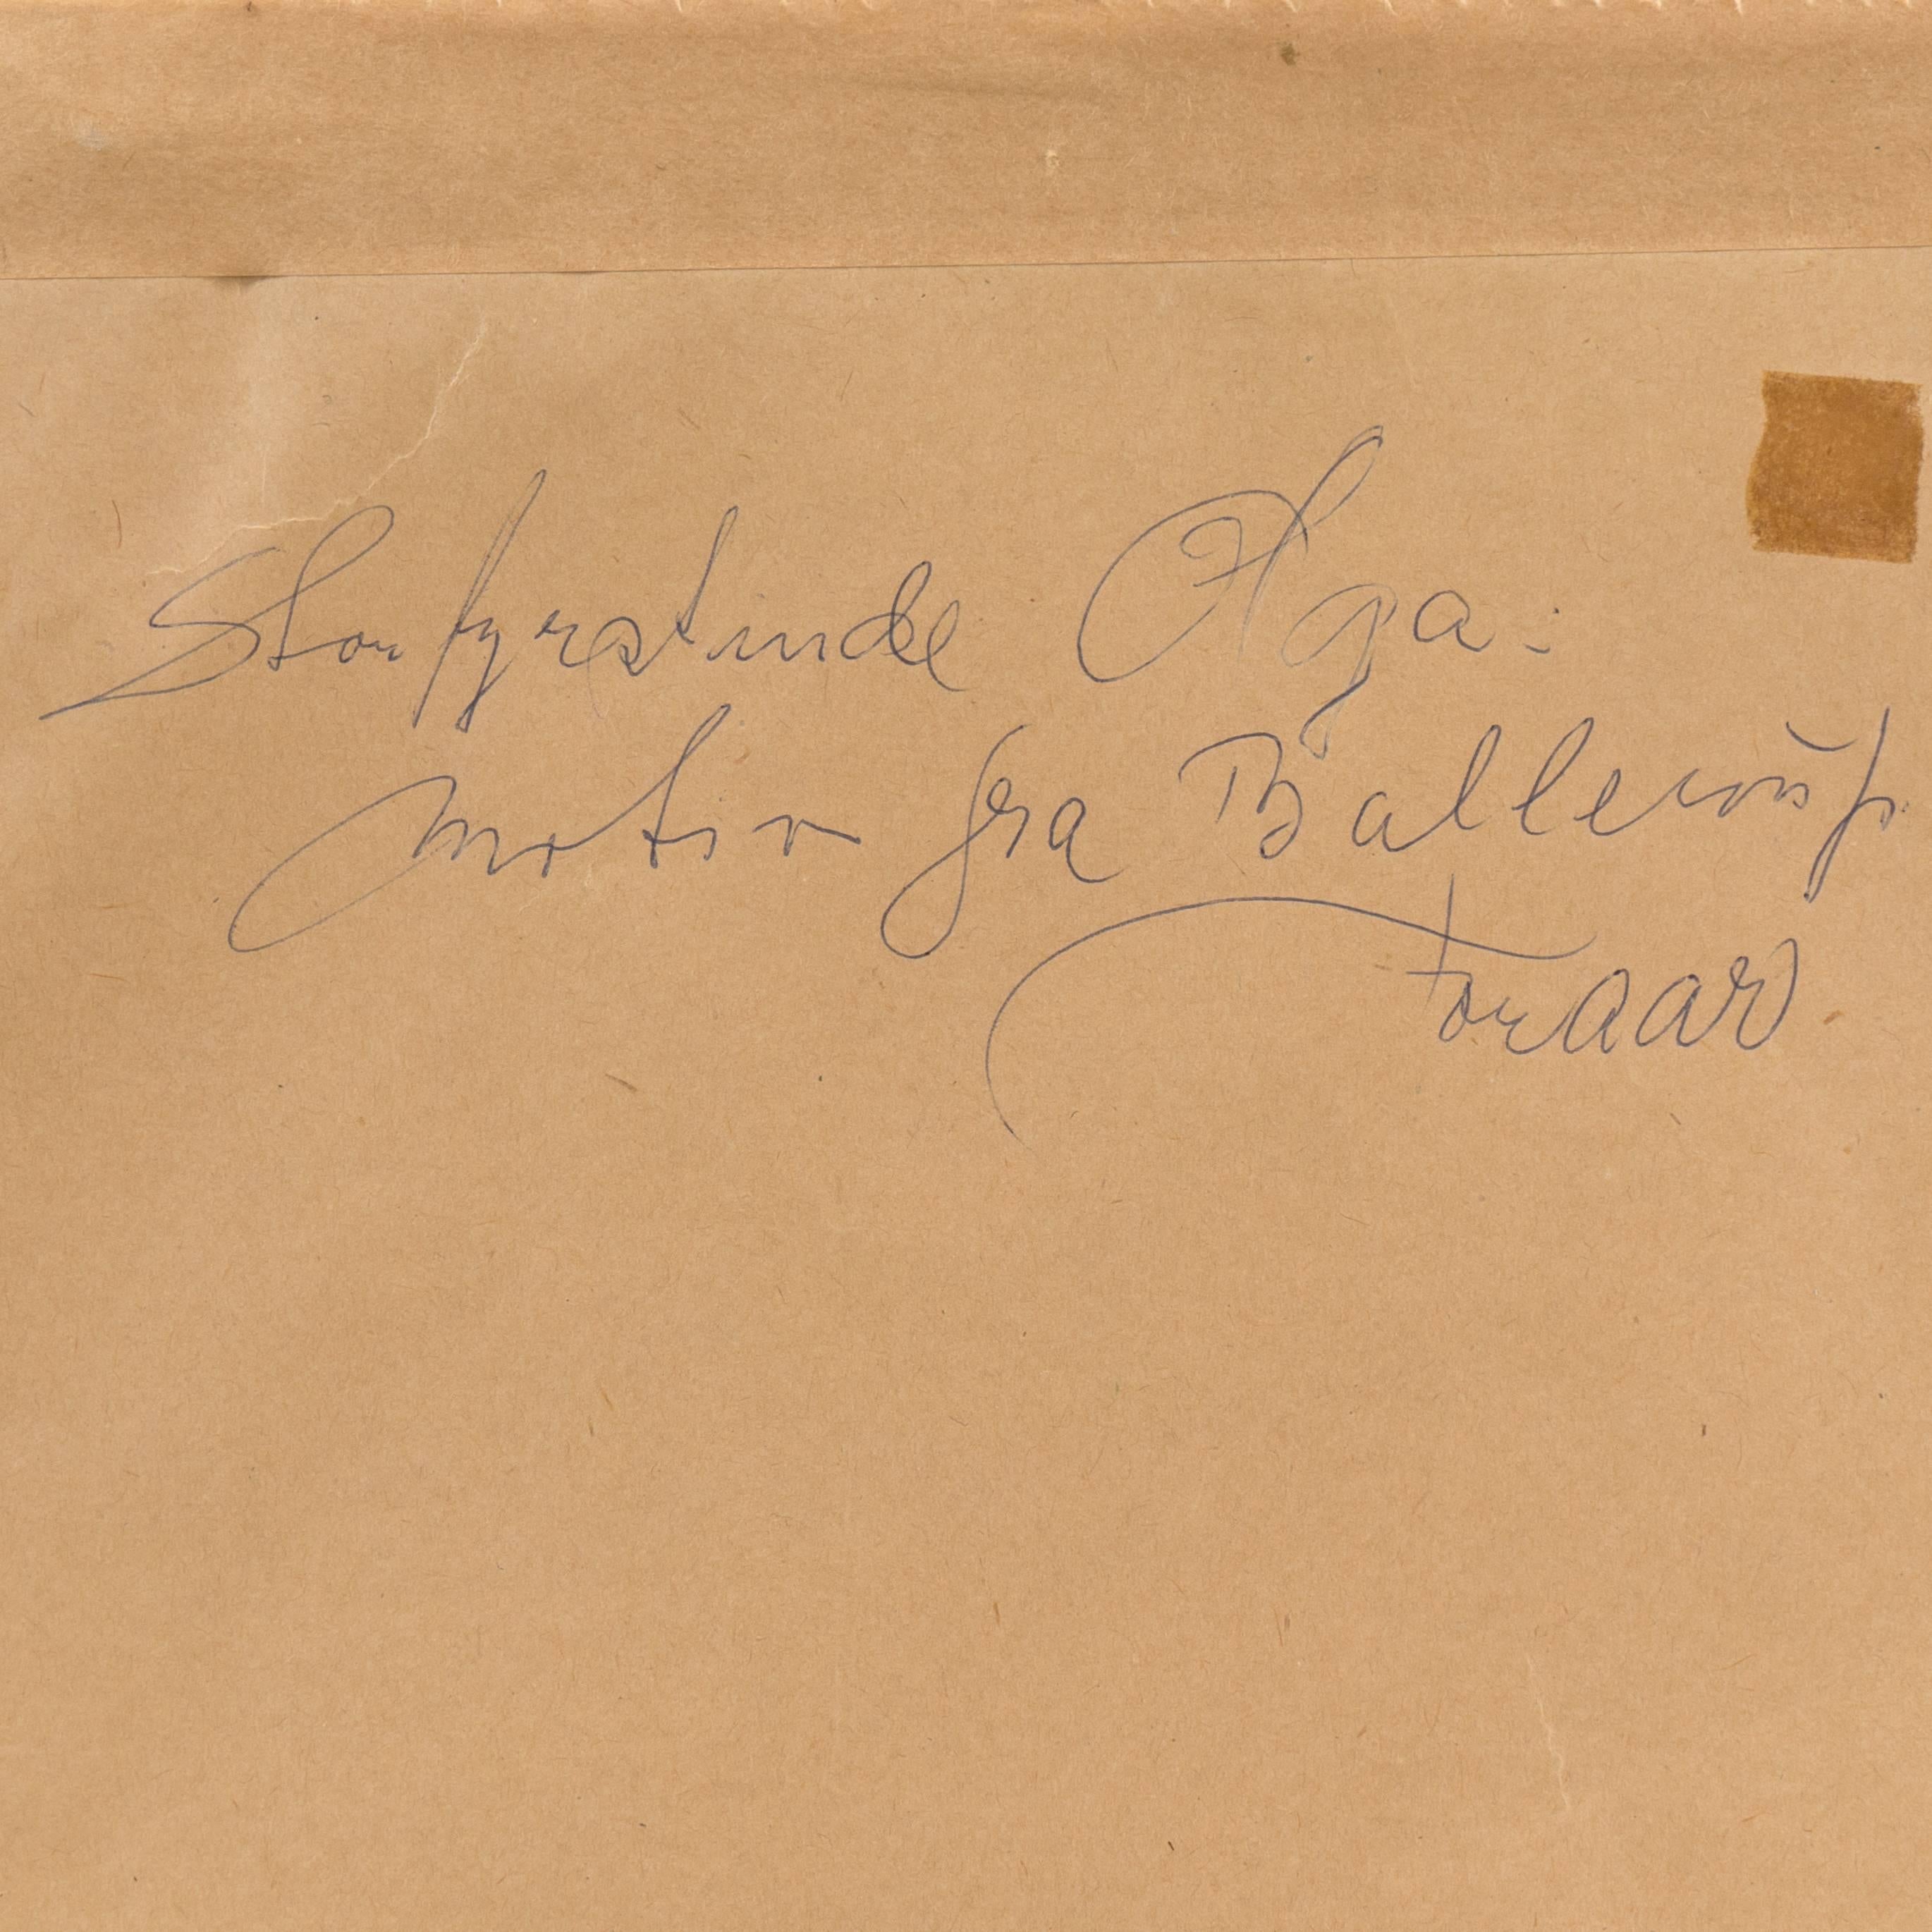 Storfyrstinde Olga:
Motiv fra Ballerup
Foraar